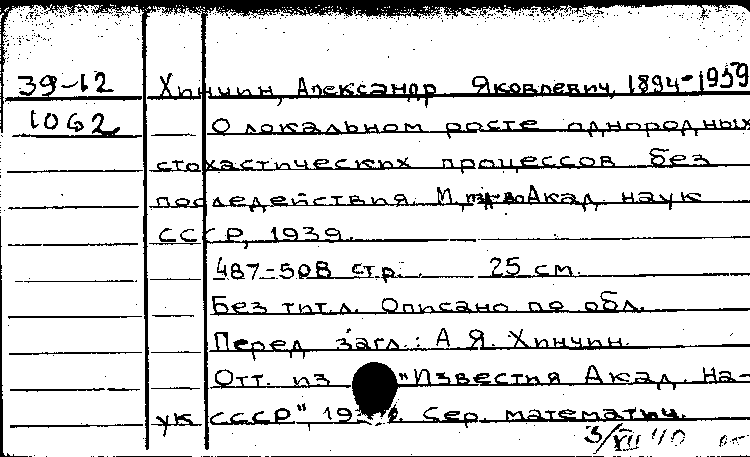 39-12 Хинчин, Александр Яковлевич, 1894-1959
1062 О локальном росте однородных
стохастических процессов без
последействия. М., изд-во Акад. наук
СССР, 1939.
487-508 стр. 25 см.
Без тит.л. Описано по обл.
Перед загл.: А. Я. Хинчин.
Отт. из "Известия Акад. На-
ук СССР", Сер. математич.
3/XII 40